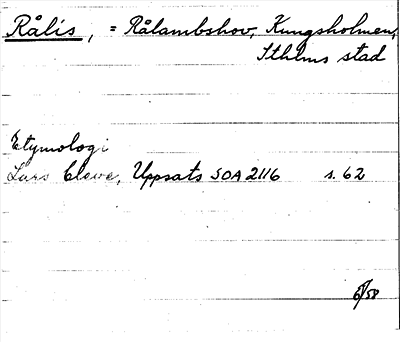 Rålis, = Rålambshov, Kungsholmen,
Sthlms stad
Etymologi
Lars Cleve, Uppsats SOA 2116 s. 62